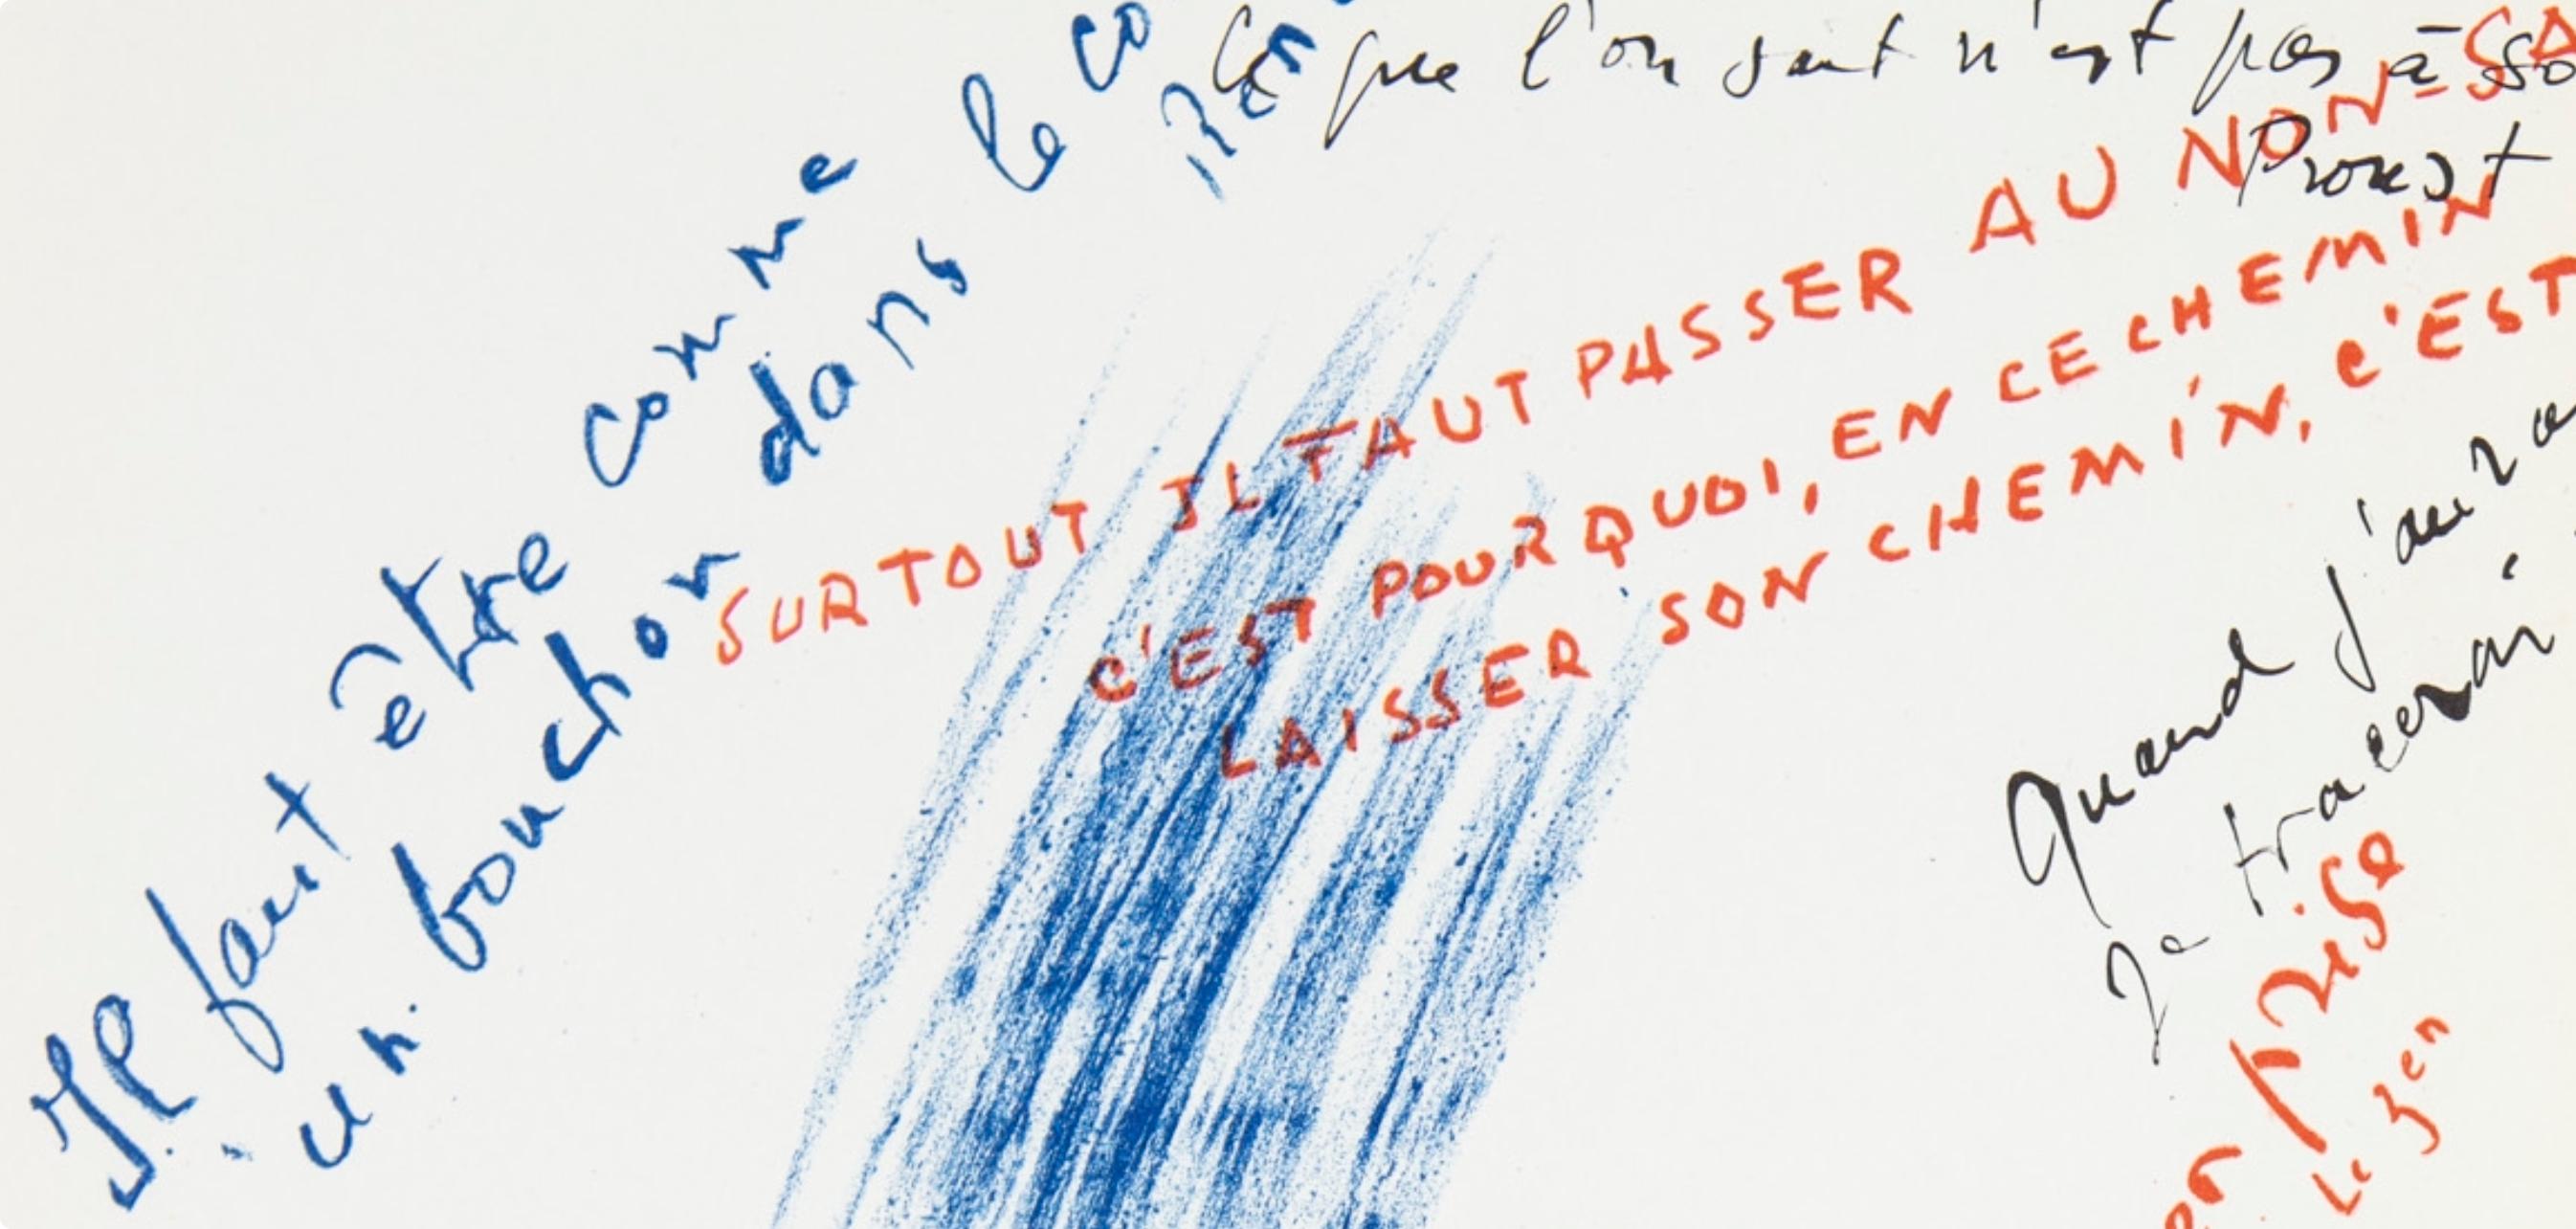 Il faut être comme le co
un bouchon dans
Ren
Ce que l'on sait n'est pas à so
Proust
SURTOUT IL FAUT PASSER AU NON-SA
C'EST POURQUOI, EN CE CHEMIN
LAISSER SON CHEMIN, C'EST
Quand j'aura
Je tracerai
prise
Le Zen